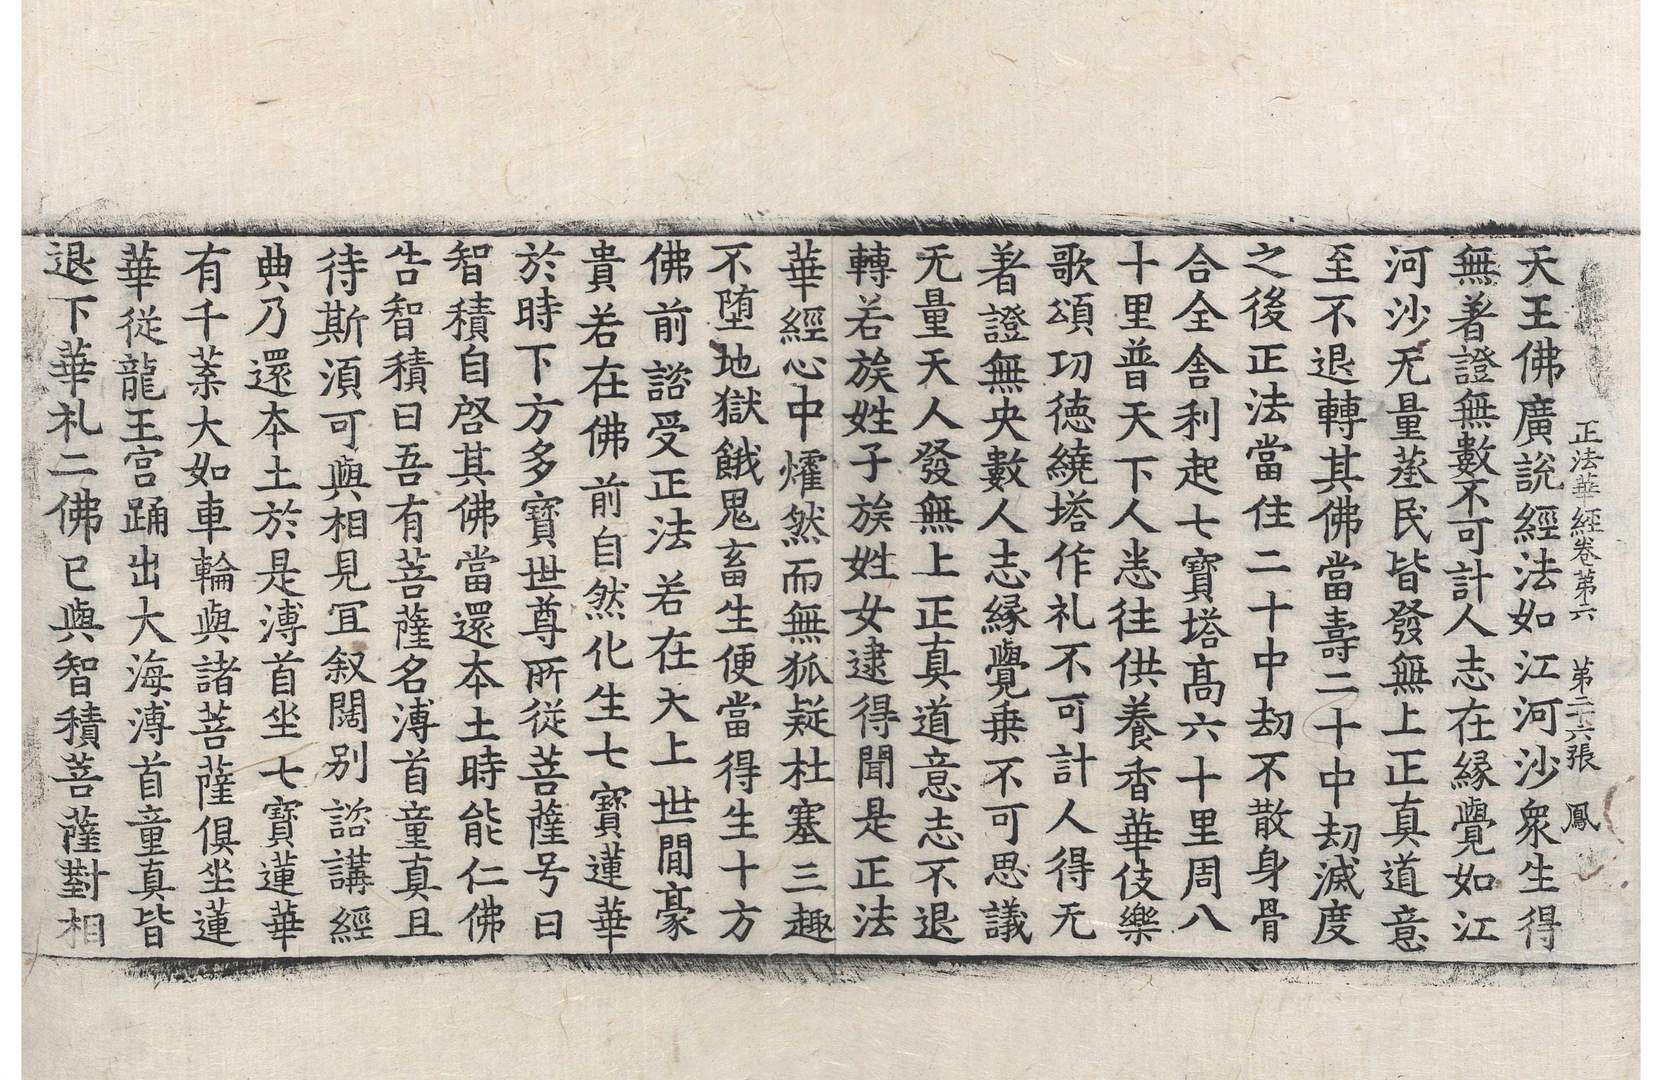 正法華經卷第六 第二十六張 鳳
天王佛廣說經法如江河沙衆生得
無著證無數不可計人志在緣覺如江
河沙无量蒸民皆發無上正真道意
至不退轉其佛當壽二十中劫滅度
之後正法當住二十中劫不散身骨
合全舍利起七寶塔高六十里周八
十里普天下人悉往供養香華伎樂
歌頌功德繞塔作礼不可計人得无
著證無央數人志緣覺乗不可思議
无量天人發無上正真道意志不退
轉若族姓子族姓女逮得聞是正法
華經心中燿然而無狐疑杜塞三趣
不墮地獄餓鬼畜生便當得生十方
佛前諮受正法若在天上世間豪
貴若在佛前自然化生七寶蓮華
於時下方多寶世尊所從菩薩号曰
智積自啓其佛當還本土時能仁佛
告智積曰吾有菩薩名溥首童真且
待斯須可與相見冝叙闊别諮講經
典乃還本土於是溥首坐七寶蓮華
有千葉大如車輪與諸菩薩俱坐蓮
華從龍王宫踊出大海溥首童真皆
退下華礼二佛已與智積菩薩對相